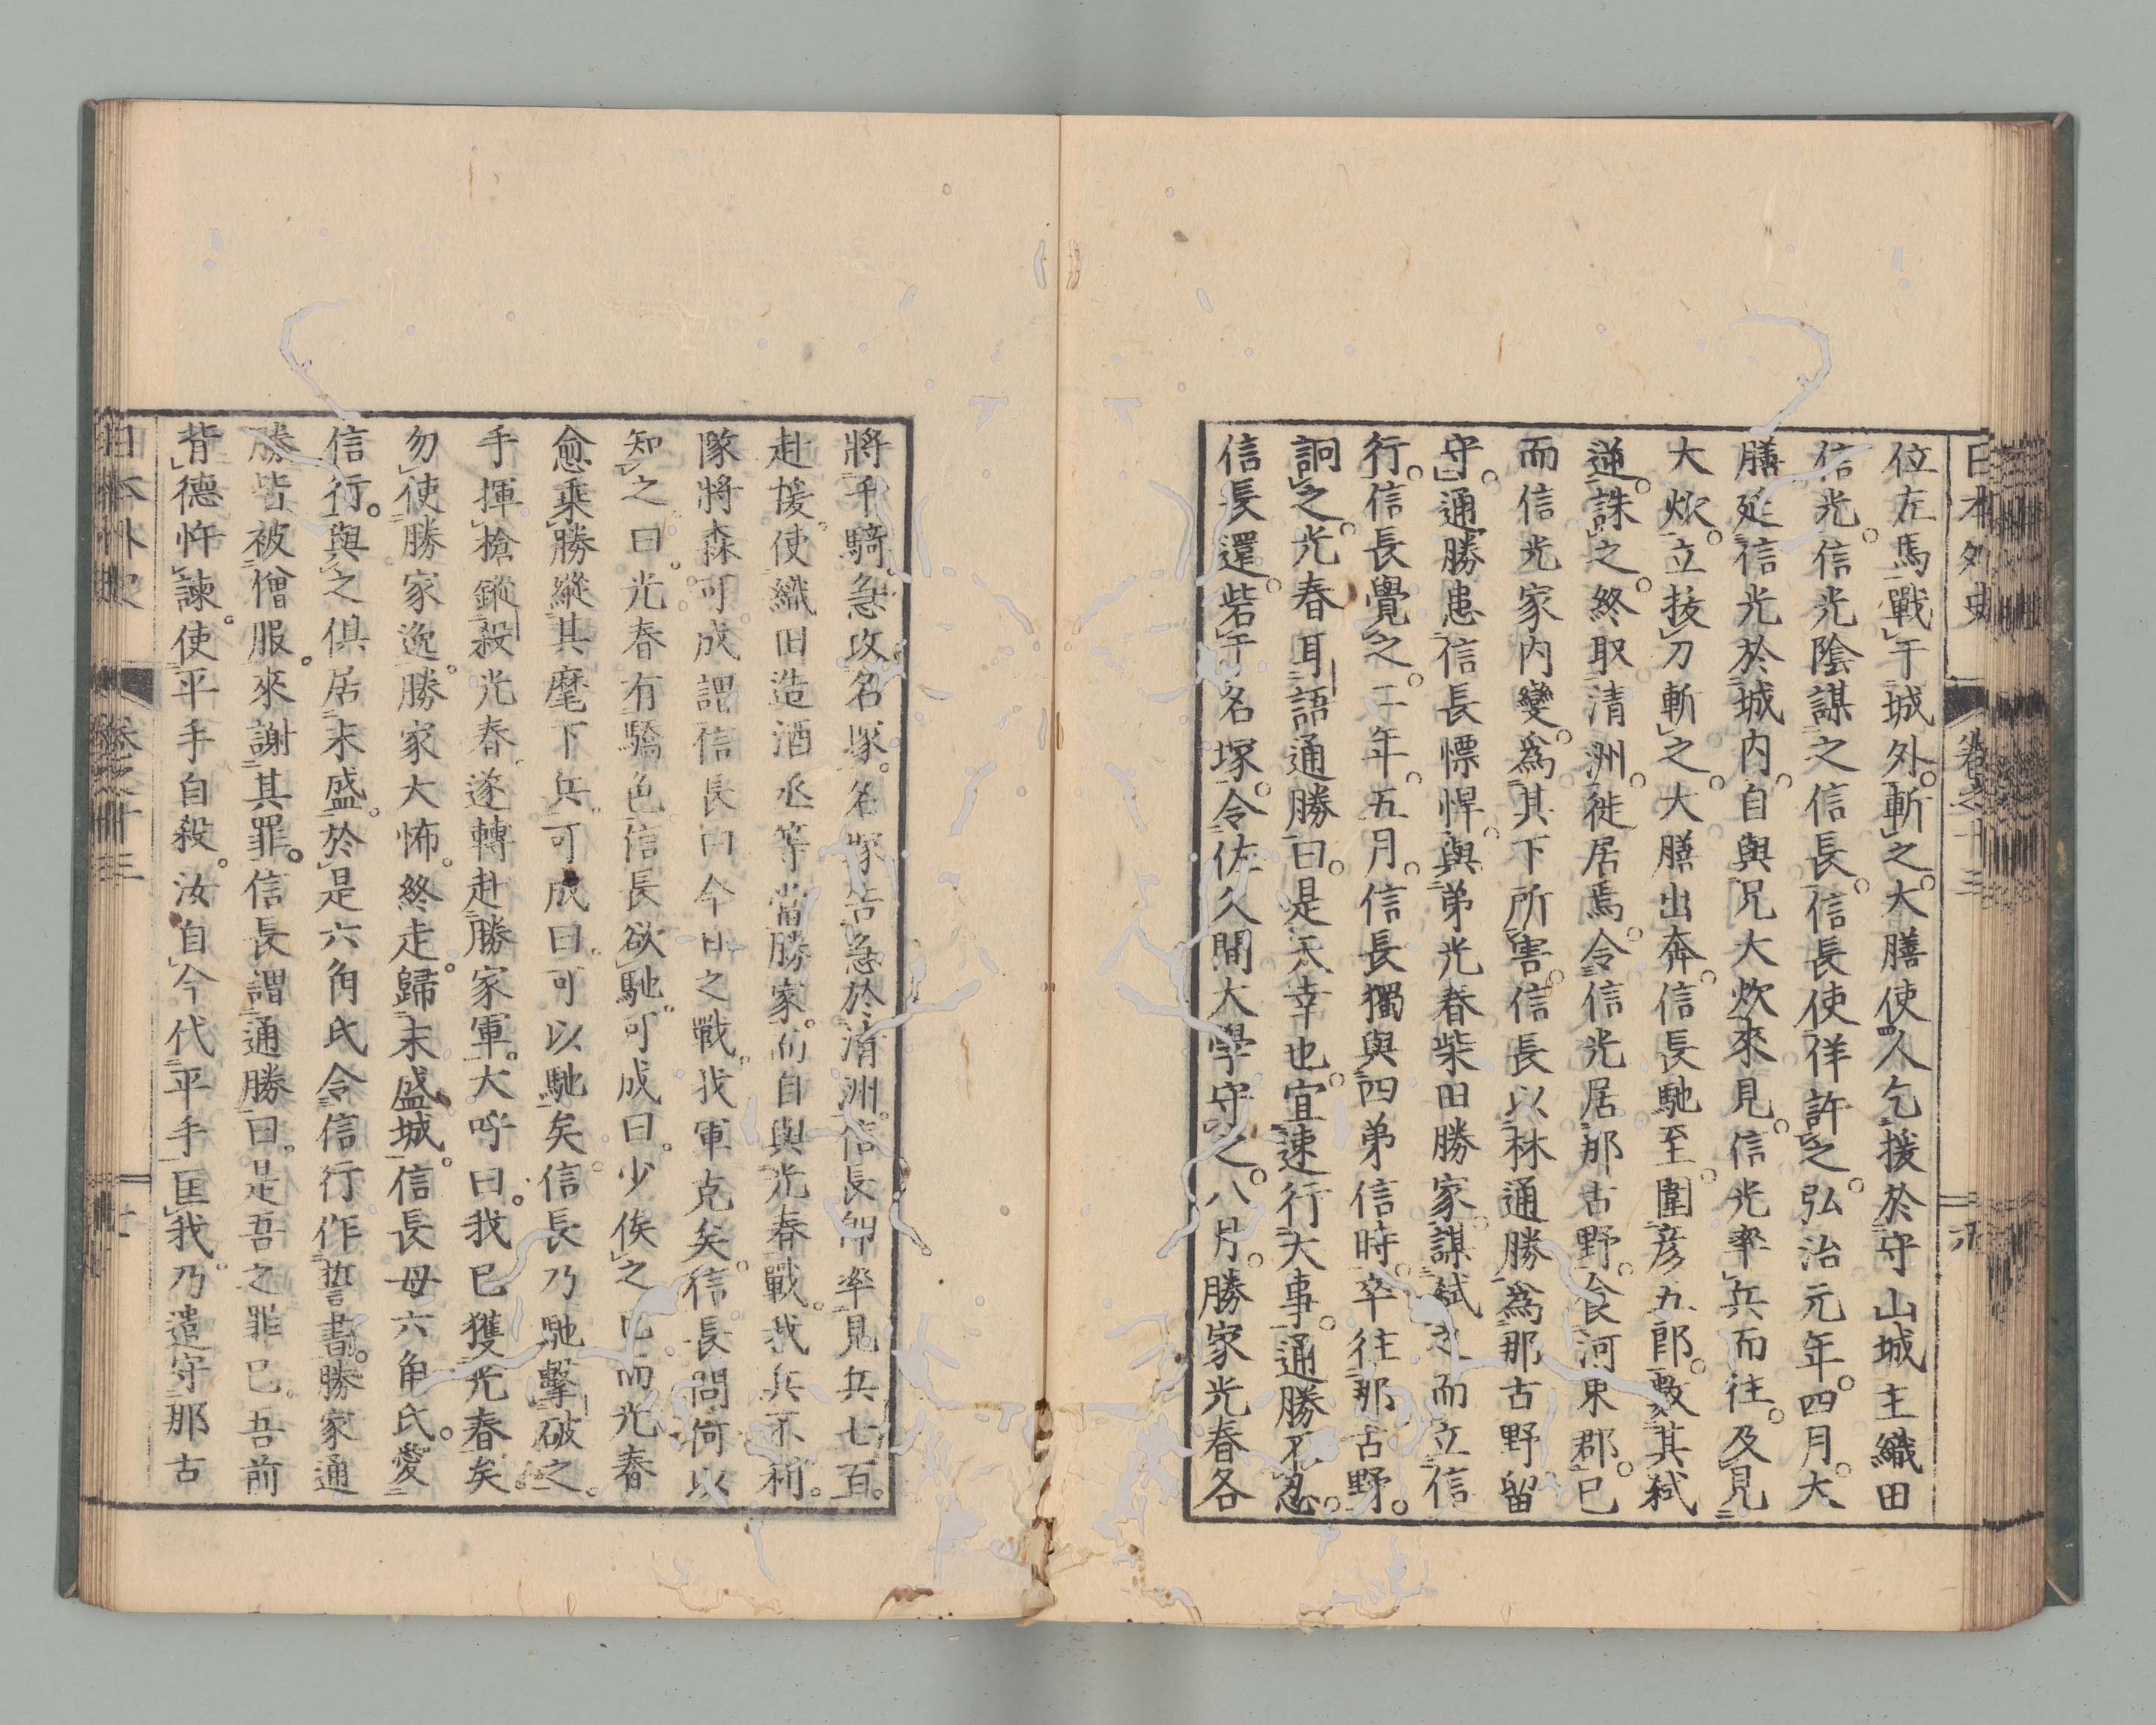 日本外史 卷之十三
位左馬戰于城外。斬之。大膳使人乞援於守山城主織田
信光。信光陰謀之信長。信長使佯許之。弘治元年。四月。大
膳延信光於城內。自與兄大炊來見。信光率兵而往。及見
大炊。立拔刀斬之。大膳出奔。信長馳至。圍彦五郎。數其弑
逆。誅之。終取清洲。徙居焉。令信光居那古野。食河東郡。已
而信光家內變。爲其下所害。信長以林通勝爲那古野留
守。通勝患信長慓悍。與弟光春柴田勝家。謀弑之而立信
行。信長覺之。二年。五月。信長獨與四弟信時。卒往那古野。
詗之。光春耳語通勝曰。是天幸也。宜速行大事。通勝不忍。
信長還。砦于名塚。令佐久間大學守之。八月。勝家光春各
將千騎。急攻名塚。名塚告急於清洲。信長即率見兵七百。
赴援。使織田造酒丞等當勝家。而自與光春戰。我兵不利。
隊將森可成謂信長曰今日之戰。我軍克矣。信長問何以
知之。曰。光春有驕色。信長欲馳。可成曰。少俟之已而光春
愈乘勝縱其麾下兵。可成曰。可以馳矣。信長乃馳擊破之。
手揮槍鏦殺光春。遂轉赴勝家軍。大呼曰。我已獲光春矣。
勿使勝家逸。勝家大怖。終走歸末盛城。信長母六角氏。愛
信行。與之俱居末盛。於是六角氏令信行作誓書。勝家通
勝皆被僧服。來謝其罪。信長謂通勝曰。是吾之罪已。吾前
背德忤諫。使平手自殺。汝自今代平手匡我。乃遣守那古
日本外史 卷之十三